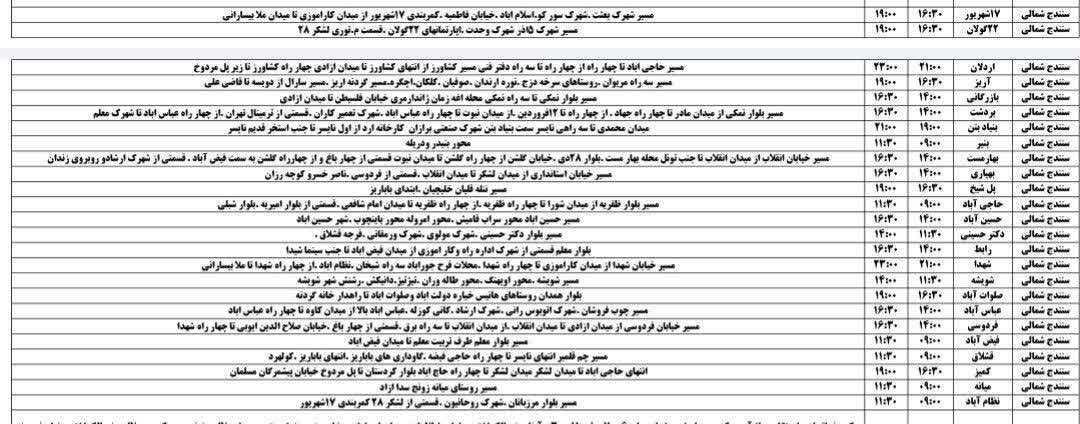 سنندج شمالی ۱۷شهریور ۱۶:۳۰ ۱۹:۰۰ مسیر شهرک بعثت .شهرک سور کو.اسلام اباد .خیابان فاطمیه .کمربندی ۱۷شهریور از میدان کاراموزی تا میدان ملا بیسارانی
سنندج شمالی ۲۲گولان ۱۶:۳۰ ۱۹:۰۰ مسیر شهرک ۱۵ذر شهرک وحدت .اپارتمانهای ۲۲گولان .قسمت م.نوری لشکر ۲۸
سنندج شمالی اردلان ۲۱:۰۰ ۲۳:۰۰ مسیر حاجی اباد تا چهار راه از چهار راه تا سه راه دفتر فنی مسیر کشاورز از انتهای کشاورز تا میدان ازادی چهار راه کشاورز تا زیر پل مردوخ
سنندج شمالی آریز ۱۶:۳۰ ۱۹:۰۰ مسیر سه راه مریوان .روستاهای سرخه دزج .نوره ارندان .صوفیان .کلکان.اچگره.مسیر گردنه اریز .مسیر سارال از دویسه تا قاضی علی
سنندج شمالی بازرگانی ۱۴:۰۰ ۱۶:۳۰ مسیر بلوار نمکی تا سه راه نمکی محله اغه زمان ژاندارمری خیابان فلسطین تا میدان ازادی
سنندج شمالی بردشت ۱۴:۰۰ ۱۶:۳۰ مسیر بلوار نمکی از میدان مادر تا چهار راه جهاد . از چهار راه تا ۱۲فروردین .از میدان نبوت تا چهار راه عباس اباد .شهرک تعمیر کاران .قسمتی از ترمینال تهران .از چهار راه عباس اباد تا شهرک معلم
سنندج شمالی بنیاد بتن ۱۹:۰۰ ۲۱:۰۰ میدان محمدی تا سه راهی نایسر سمت بنیاد بتن شهرک صنعتی برازان کارخانه ارد از اول نایسر تا جنب استخر قدیم نایسر
سنندج شمالی بنیر ۰۹:۰۰ ۱۱:۳۰ محور بنیدر ودریله
سنندج شمالی بهارمست ۱۴:۰۰ ۱۶:۳۰ مسیر خیابان انقلاب از میدان انقلاب تا جنب تونل محله بهار مست .بلوار ۲۸دی .خیابان گلشن از چهار راه گلشن تا میدان نبوت قسمتی از چهار باغ و از چهارراه گلشن به سمت فیض آباد . قسمتی از شهرک ارشادو روبروی زندان
سنندج شمالی بهیاری ۱۴:۰۰ ۱۶:۳۰ مسیر خیابان استانداری از میدان لشکر تا میدان انقلاب .قسمتی از فردوسی .ناصر خسرو کوچه رزان
سنندج شمالی پل شیخ ۱۶:۳۰ ۱۹:۰۰ مسیر تتله قلیان خلیچیان .ابتدای باباریز
سنندج شمالی حاجی آباد ۰۹:۰۰ ۱۱:۳۰ مسیر بلوار ظفریه از میدان شورا تا چهار راه ظفریه .از چهار راه ظفریه تا میدان امام شافعی .قسمتی از بلوار امیریه .بلوار شبلی
سنندج شمالی حسین آباد ۱۴:۰۰ ۱۶:۳۰ مسیر حسین اباد محور سراب قامیش .محور امروله محور باینچوب .شهر حسین اباد
سنندج شمالی دکتر حسینی ۱۱:۳۰ ۱۴:۰۰ مسیر بلوار دکتر حسینی .شهرک مولوی .شهرک ورمقانی .فرجه قشلاق .
سنندج شمالی رابط ۱۴:۰۰ ۱۶:۳۰ بلوار معلم قسمتی از شهرک اداره راه وکار اموزی از میدان فیض اباد تا جنب سینما شیدا
سنندج شمالی شهدا ۲۱:۰۰ ۲۳:۰۰ مسیر خیابان شهدا از میدان کاراموزی تا چهار راه شهدا .محلات فرح حوراباد سه راه شیخان .نظام آباد .از چهار راه شهدا تا ملا بیسارانی
سنندج شمالی شویشه ۱۱:۳۰ ۱۴:۰۰ مسیر شویشه .محور اویهنگ .محور طاله وران .نیزتیز.دانیکش .رشنش شهر شویشه
سنندج شمالی صلوات آباد ۱۶:۳۰ ۱۹:۰۰ بلوار همدان روستاهای هانیس خیاره دولت اباد وصلوات اباد تا راهدار خانه گردنه
سنندج شمالی عباس آباد ۱۴:۰۰ ۱۶:۳۰ مسیر چوب فروشان .شهرک اتوبوس رانی .شهرک ارشاد .کانی کوزله .عباس اباد بالا از میدان کاوه تا چهار راه عباس اباد
سنندج شمالی فردوسی ۱۴:۰۰ ۱۶:۳۰ مسیر خیابان فردوسی از میدان ازادی تا میدان انقلاب .از میدان انقلاب تا سه راه برق .قسمتی از چهار باغ .خیابان صلاح الدین ایوبی تا چهار راه شهدا
سنندج شمالی فیض آباد ۰۹:۰۰ ۱۱:۳۰ مسیر بلوار معلم طرف تربیت معلم تا میدان فیض اباد
سنندج شمالی قشلاق ۰۹:۰۰ ۱۱:۳۰ مسیر چم قلمیر انتهای نایسر تا چهار راه حاجی فیضه .گاوداری های باباریز .انتهای باباریز .کولهرد
سنندج شمالی کمیز ۱۶:۳۰ ۱۹:۰۰ انتهای حاجی اباد تا میدان لشکر میدان لشکر تا چهار راه حاج اباد بلوار کردستان تا پل مردوخ خیابان پیشمرگان مسلمان
سنندج شمالی میانه ۰۹:۰۰ ۱۱:۳۰ مسیر روستای میانه زونج سدا ازاد
سنندج شمالی نظام آباد ۰۹:۰۰ ۱۱:۳۰ مسیر بلوار مرزبانان .شهرک روحانیون .قسمتی از لشکر ۲۸ کمربندی ۱۷شهریور